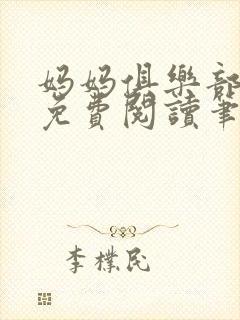 妈妈俱樂部
免費閱讀筆
李樸民